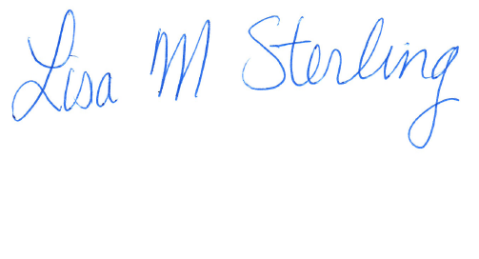 Lisa M Sterling